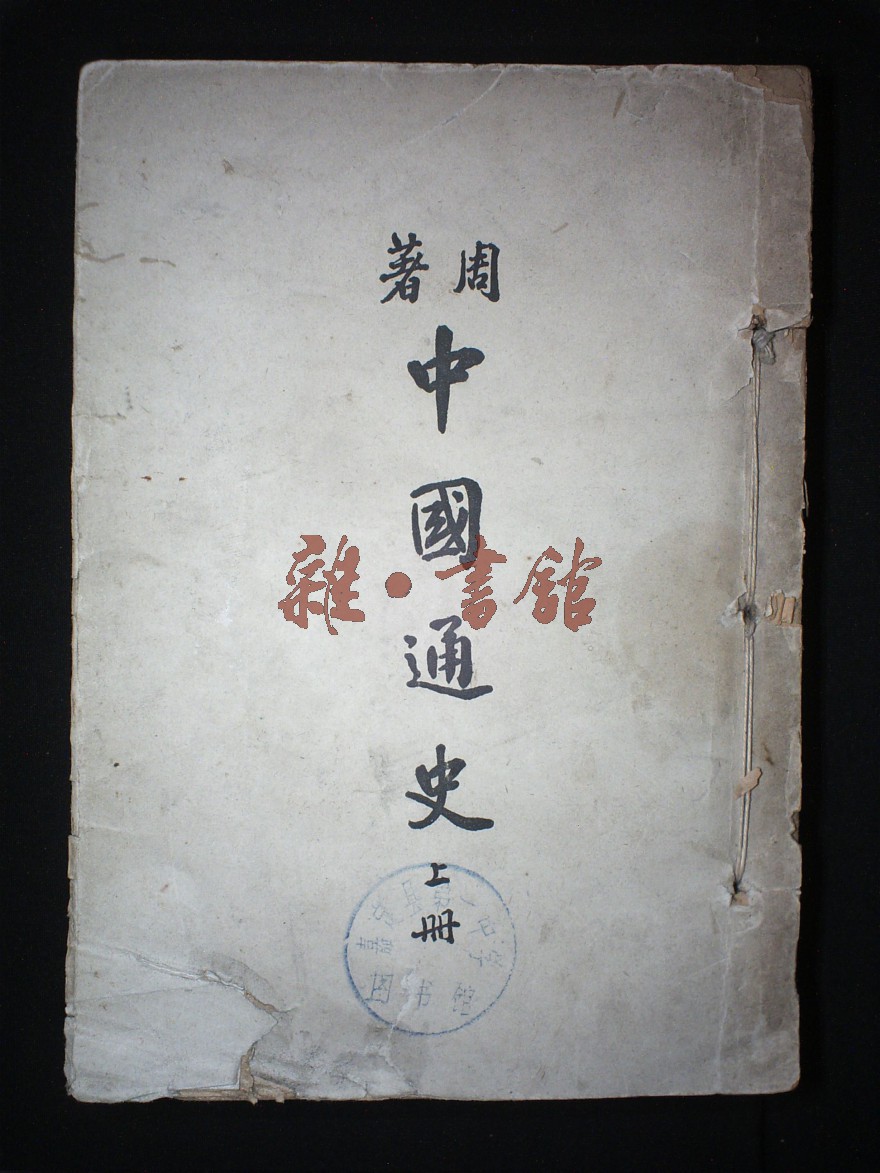 周著
中國通史
上册
雜·書館
图书馆